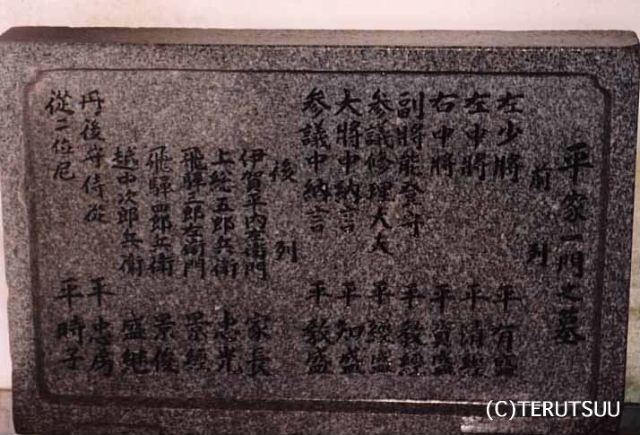 平家一門之墓
前列
左少將 平有盛
左中將 平清經
右中將 平資盛
副將能登守 平教經
参議修理大夫 平經盛
大將中納言 平知盛
参議中納言 平教盛
後列
伊賀平内左衛門 家長
上総五郎兵衛 忠光
飛騨三郎左衛門 景經
飛騨四郎兵衛 景俊
越中次郎兵衛 盛継
丹後守侍従 平忠房
從二位尼 平時子
(C)TERUTSUU